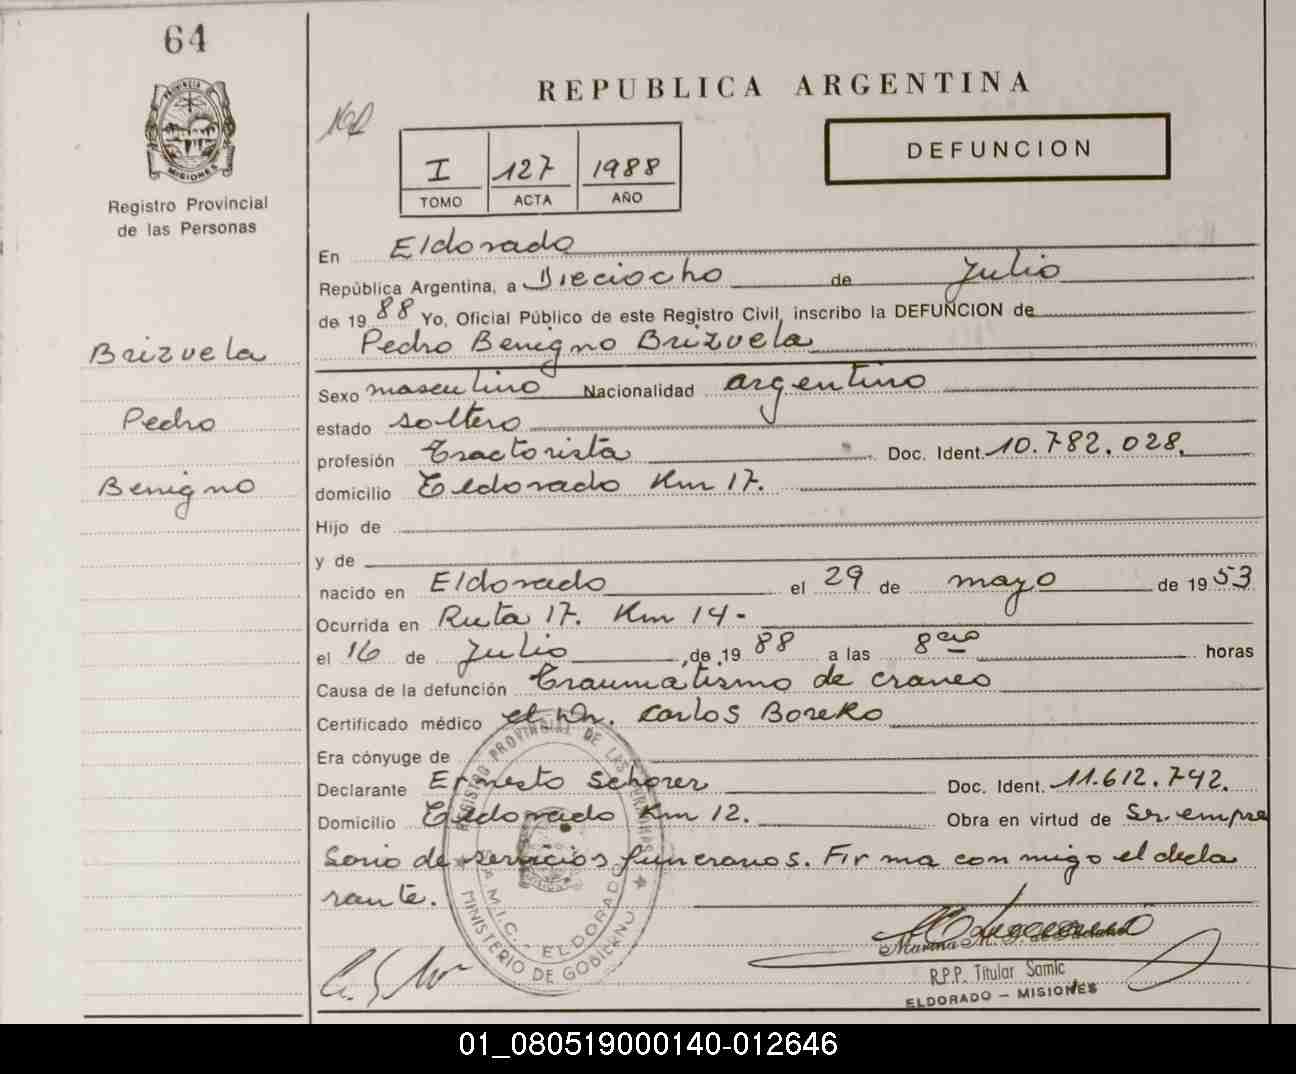 64
PROVINCIA
MISIONES
Registro Provincial
de las Personas
Brizuela
Pedro
Benigno
REPUBLICA ARGENTINA
I 127 1988
TOMO ACTA AÑO
DEFUNCION
En Eldorado
República Argentina, a Dieciocho de Julio
de 1988 Yo, Oficial Público de este Registro Civil, inscribo la DEFUNCION de
Pedro Benigno Brizuela
Sexo masculino Nacionalidad argentino
estado soltero
profesión Tractorista Doc. Ident. 10.782.028.
domicilio Eldorado Km 17.
Hijo de
y de
nacido en Eldorado el 29 de mayo de 1953
Ocurrida en Ruta 17. Km 14-
el 16 de Julio de 1988 a las 8 horas
Causa de la defunción Traumatismo de craneo
Certificado médico el Dr. Carlos
Era cónyuge de
Declarante Ernesto Schorer Doc. Ident. 11.612.742.
Domicilio Eldorado Km 12. Obra en virtud de Ser empre
sario de servicios funerarios. Firma conmigo el decla
rante.
REGISTRO PROVINCIAL DE LAS PERSONAS
S.A.M.I.C. - ELDORADO
MINISTERIO DE GOBIERNO
R.P.P. Titular Samic
ELDORADO - MISIONES
01_080519000140-012646